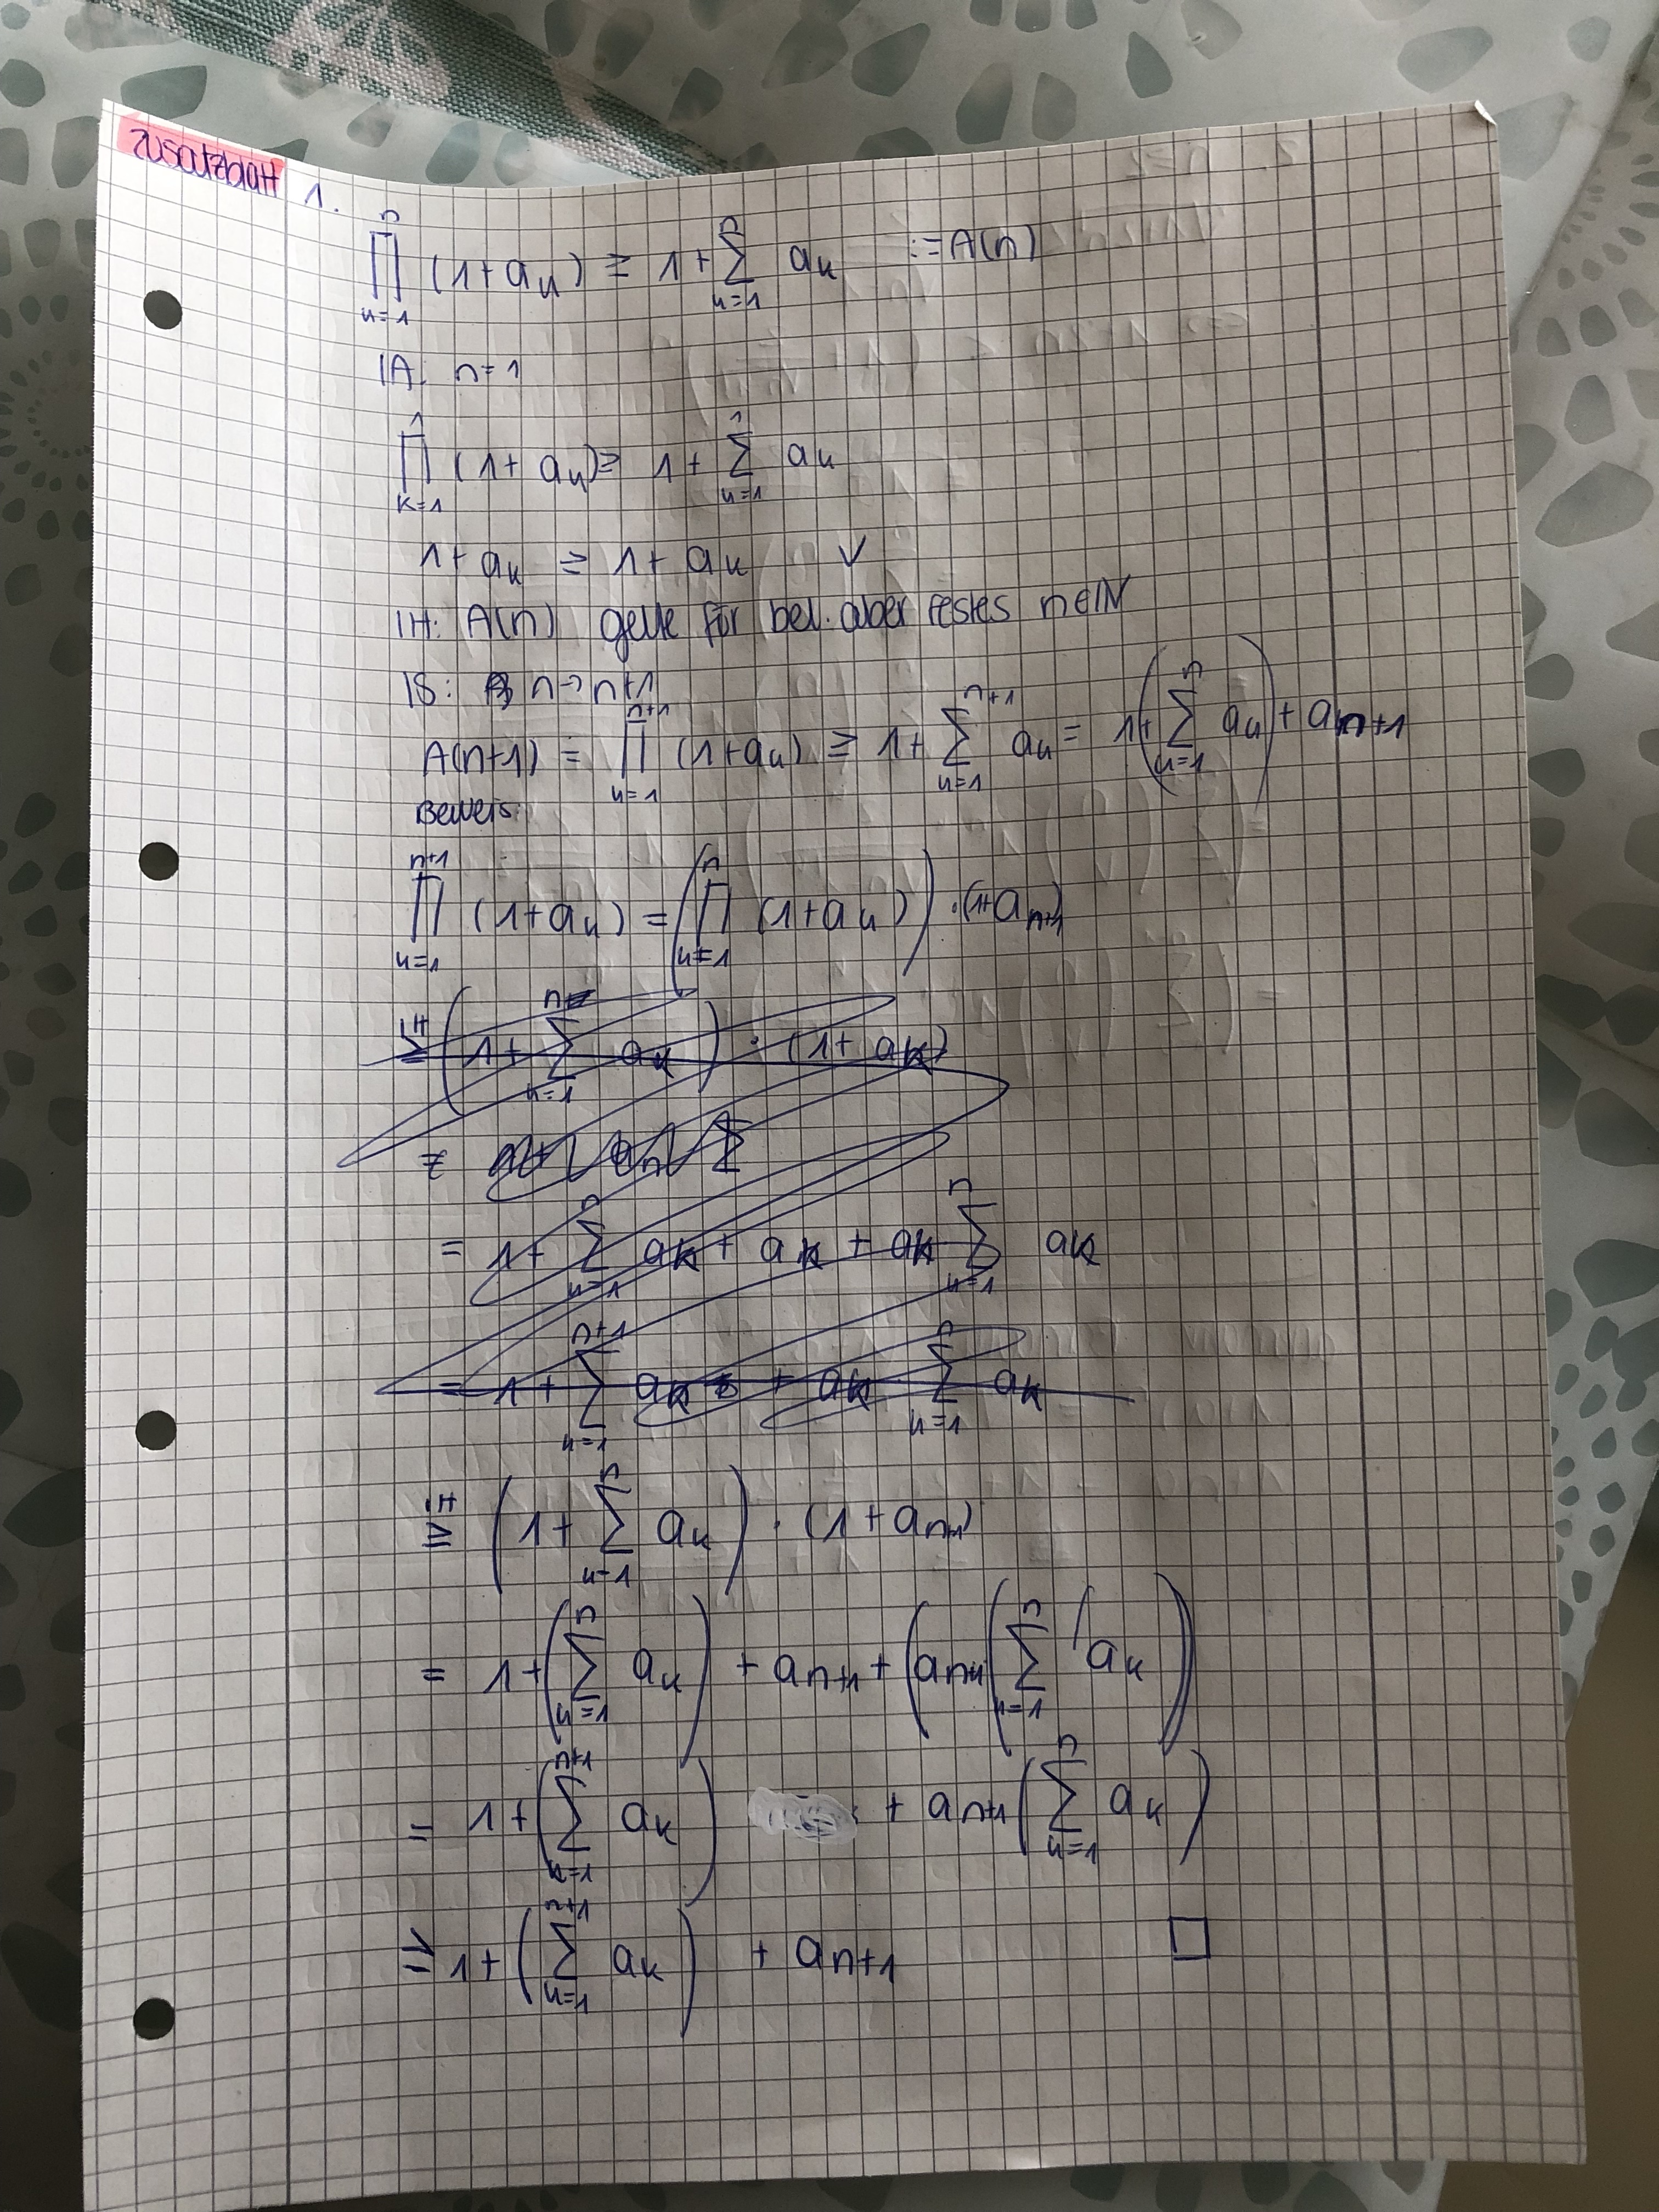 Zusatzblatt 1.
∏_{k=1}^{n} (1+a_k) ≥ 1+∑_{k=1}^{n} a_k := A(n)
IA: n=1
∏_{k=1}^{1} (1+a_k) ≥ 1+∑_{k=1}^{1} a_k
1+a_k ≥ 1+a_k ✓
IH: A(n) gelte für bel. aber festes n∈ℕ
IS: n→n+1
A(n+1) = ∏_{k=1}^{n+1} (1+a_k) ≥ 1+∑_{k=1}^{n+1} a_k = 1+(∑_{k=1}^{n} a_k)+a_{n+1}
Beweis:
∏_{k=1}^{n+1} (1+a_k) = (∏_{k=1}^{n} (1+a_k)) · (1+a_{n+1})
≥^{IH} (1+∑_{k=1}^{n} a_k) · (1+a_k)
=
= 1+∑_{k=1}^{n} a_k + a_k + a_k ∑_{k=1}^{n} a_k
= 1+∑_{k=1}^{n+1} a_k + a_k ∑_{k=1}^{n} a_k
≥^{IH} (1+∑_{k=1}^{n} a_k) · (1+a_{n+1})
= 1+(∑_{k=1}^{n} a_k) + a_{n+1} + (a_{n+1}(∑_{k=1}^{n} a_k))
= 1+(∑_{k=1}^{n+1} a_k) + a_{n+1}(∑_{k=1}^{n} a_k)
≥ 1+(∑_{k=1}^{n+1} a_k) + a_{n+1} □